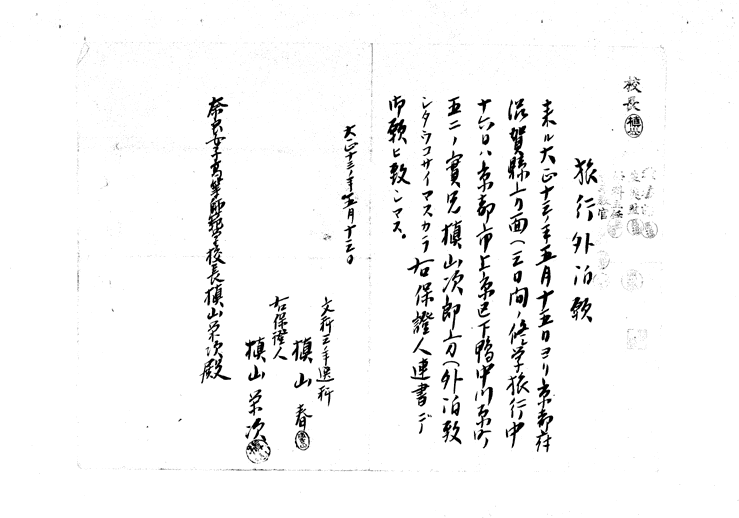 校長
旅行外泊願
来ル大正十三年五月十五日ヨリ京都府
滋賀縣方面(三日間ノ修学旅行中
十六日ハ京都市上京区下鴨中川原町
五二ノ實兄槙山次郎方(外泊致
シタウゴザイマスカラ右保證人連書デ
御願ヒ致シマス。
大正十三年五月十三日
文科三年選科
槙山 春
右保證人
槙山栄次
奈良女子高等師範学校長槙山栄次殿